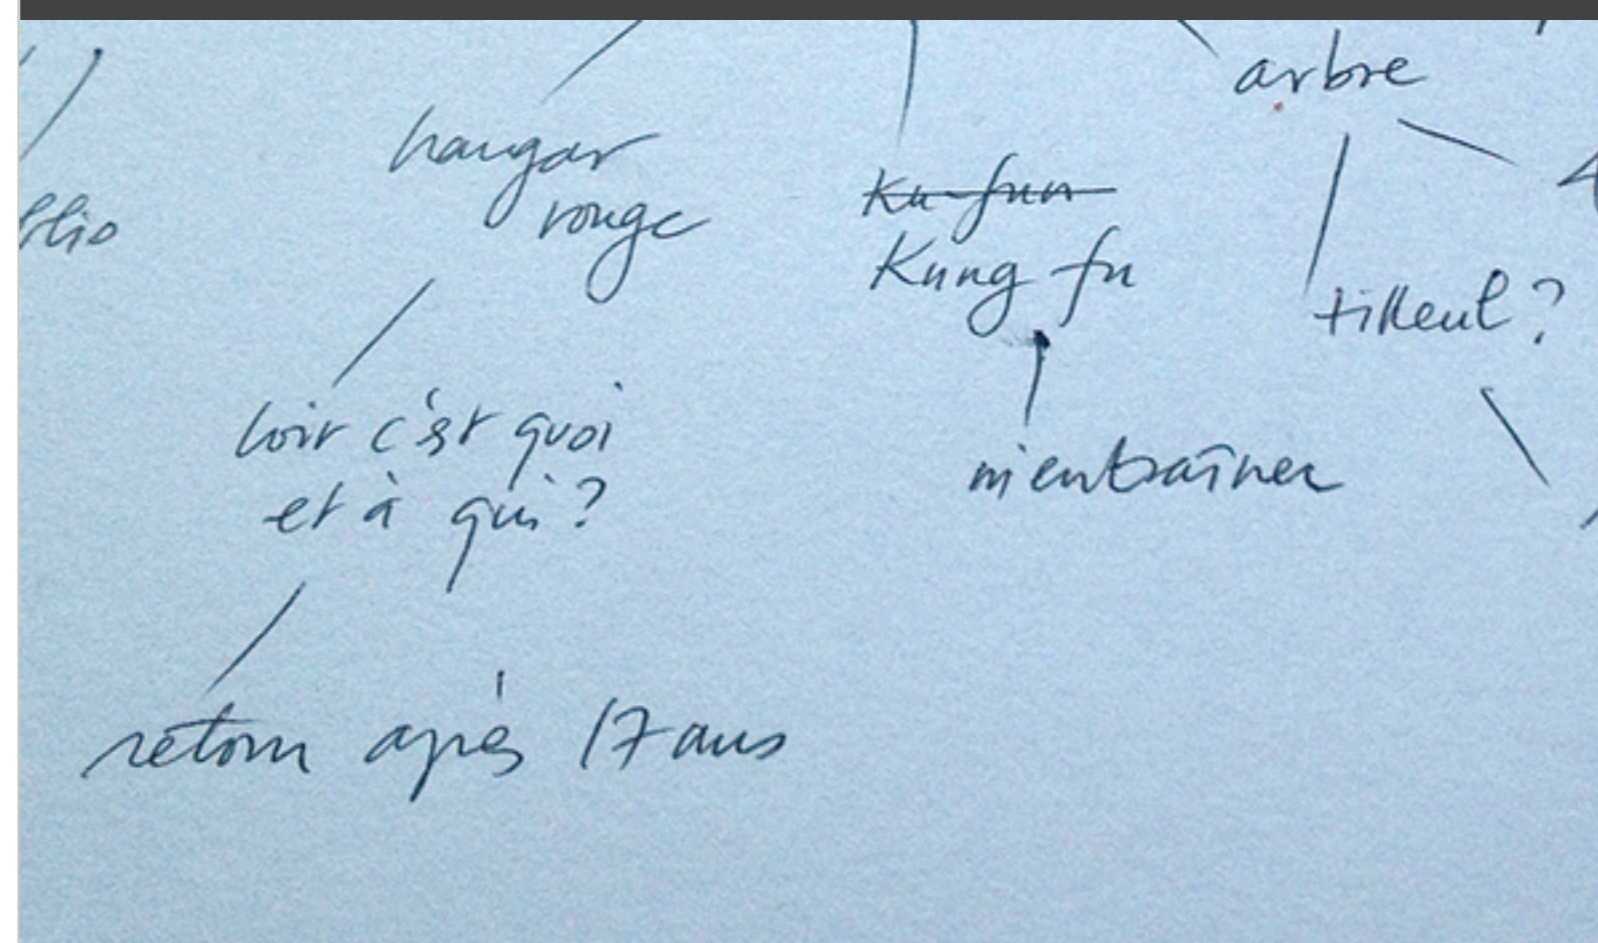 arbre
hangar
rouge
Ku fun
Kung fu
tilleul ?
voir c'est quoi
et à qui ?
m'entraîner
retour après 17 ans